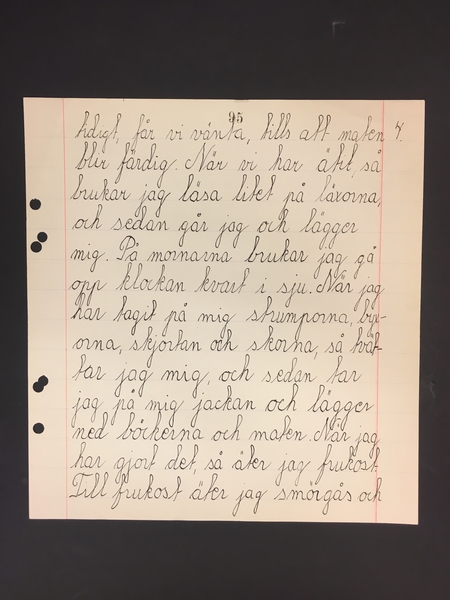 95
tidigt, får vi vänta, tills att maten 4.
blir färdig. När vi har ätit, så
brukar jag läsa litet på läxorna,
och sedan går jag och lägger
mig. På mornarna brukar jag gå
opp klockan kvart i sju. När jag
har tagit på mig strumporna, byx-
orna, skjortan och skorna, så tvät-
tar jag mig, och sedan tar
jag på mig jackan och lägger
ned böckerna och maten. När jag
har gjort det, så äter jag frukost.
Till frukost äter jag smörgås och